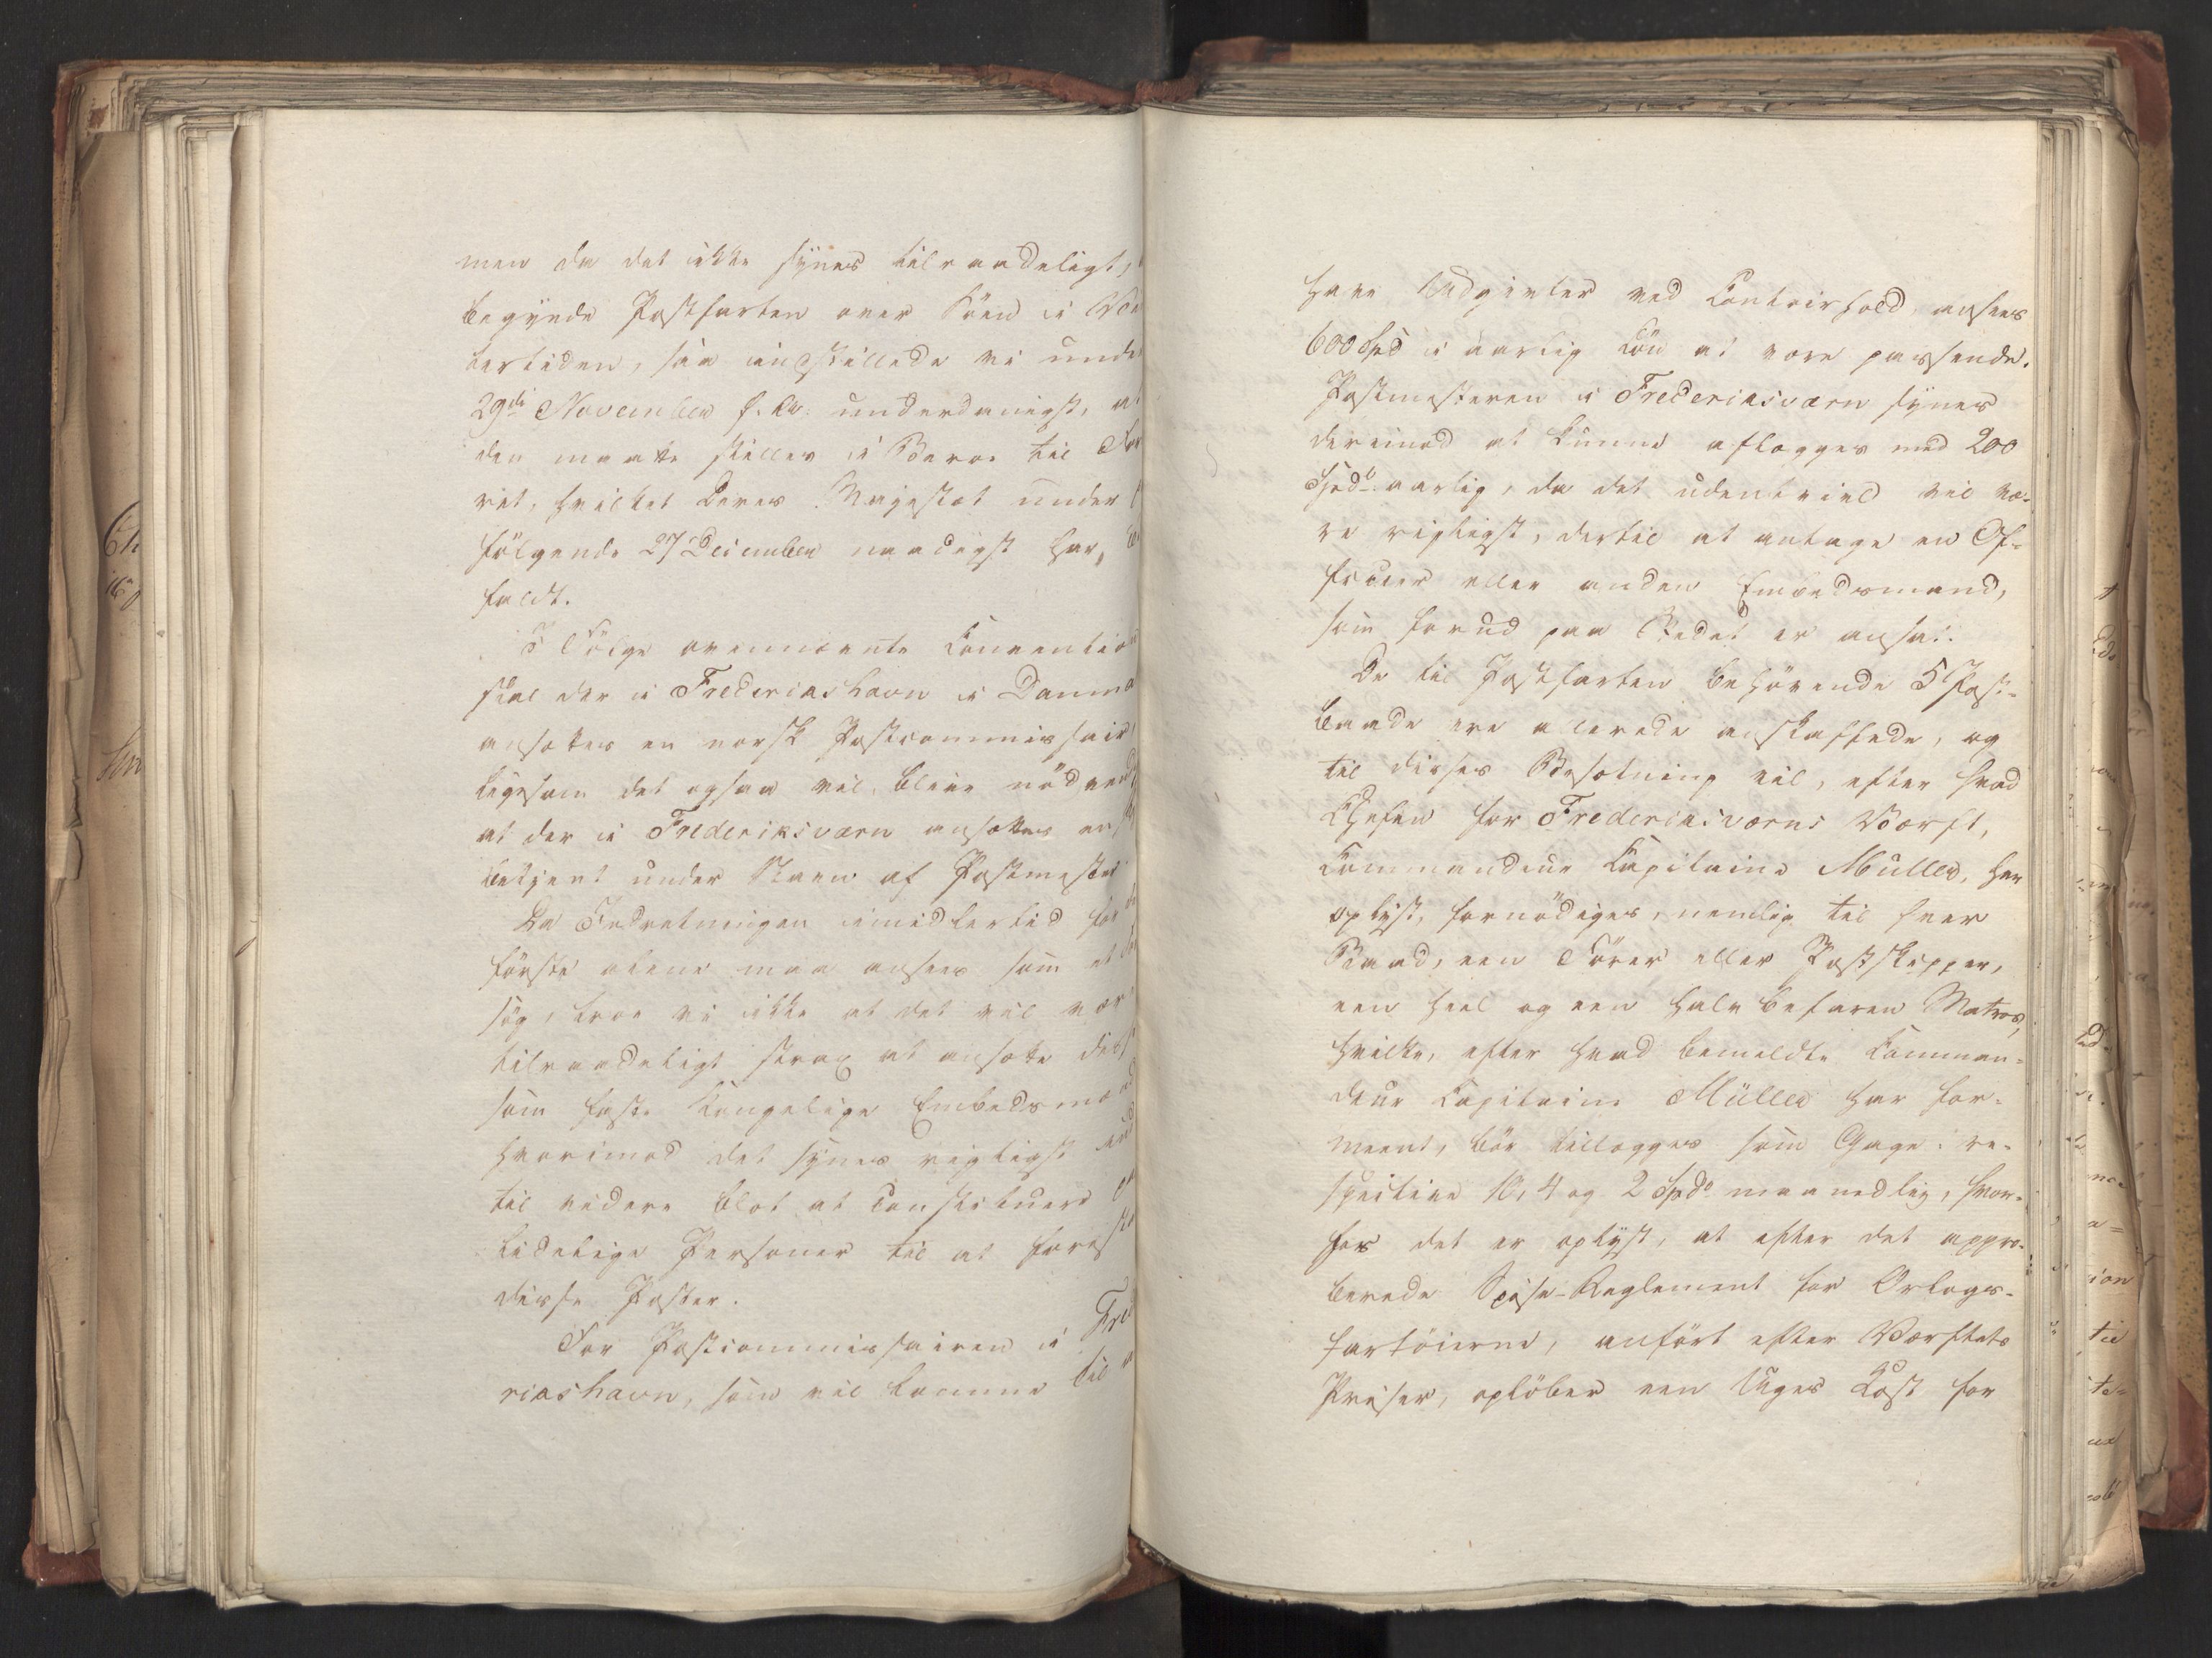 men da det ikke synes tilraadeligt,
begynde Postfarten over Söen i Vin
tertiden, saa indstillede vi under
29de November f. A. underdanigst, at
den maatte stilles i Bero til For
ret, hvilket Deres Majestæt under
følgende 27 December naadigst har bi
faldt.
I Følge ovennævnte Convention
skal der i Fredericshavn i Danma
ansættes en norsk Postcommissair,
ligesom det ogsaa vil blive nödvend
at der i Frederiksværn ansættes en
betjent under Navn af Postmester
Da Indretningen imidlertid for
förste alene maa ansees som et
søg, troe vi ikke at det vil være
tilraadeligt strax at ansætte disse
som faste Kongelige Embedsmænd
hvorimod det synes rigtigst ind
til videre blot at constituere
lidelige Personer til at forest
disse Poster.
For Postcommissairen i Fred
ricshavn, som vil komme til
have Udgivter ved Contoirhold, ansees
600 Spd i aarlig Lön at være passende.
Postmesteren i Fredericsværn synes
derimod at kunne aflægges med 200
Spd aarlig, da det udentvivl vil væ-
re rigtigst, dertil at antage en Of-
ficier eller anden Embedsmand,
som forud paa Stedet er ansat.
De til Postfarten behövende 5 Post-
baade ere allerede anskaffede, og
til disses Besætning vil, efter hvad
Chefen for Fredericsværns Værft,
Commandeur Capitaine Müller, har
oplyst, fornödiges, nemlig til hver
Baad, een Förer eller Postskipper,
een heel og een halv befaren Matros,
hvilke, efter hvad bemeldte Comman-
deur Capitaine Müller har for-
meent, bör tillægges som Gage: re-
spective 10, 4 og 2 Spd maanedlig, hvor-
hos det er oplyst, at efter det appro-
berede Spise-Reglement for Orlogs-
fartöierne, anfört efter Værftets
Priser, oplöber een Uges Kost for